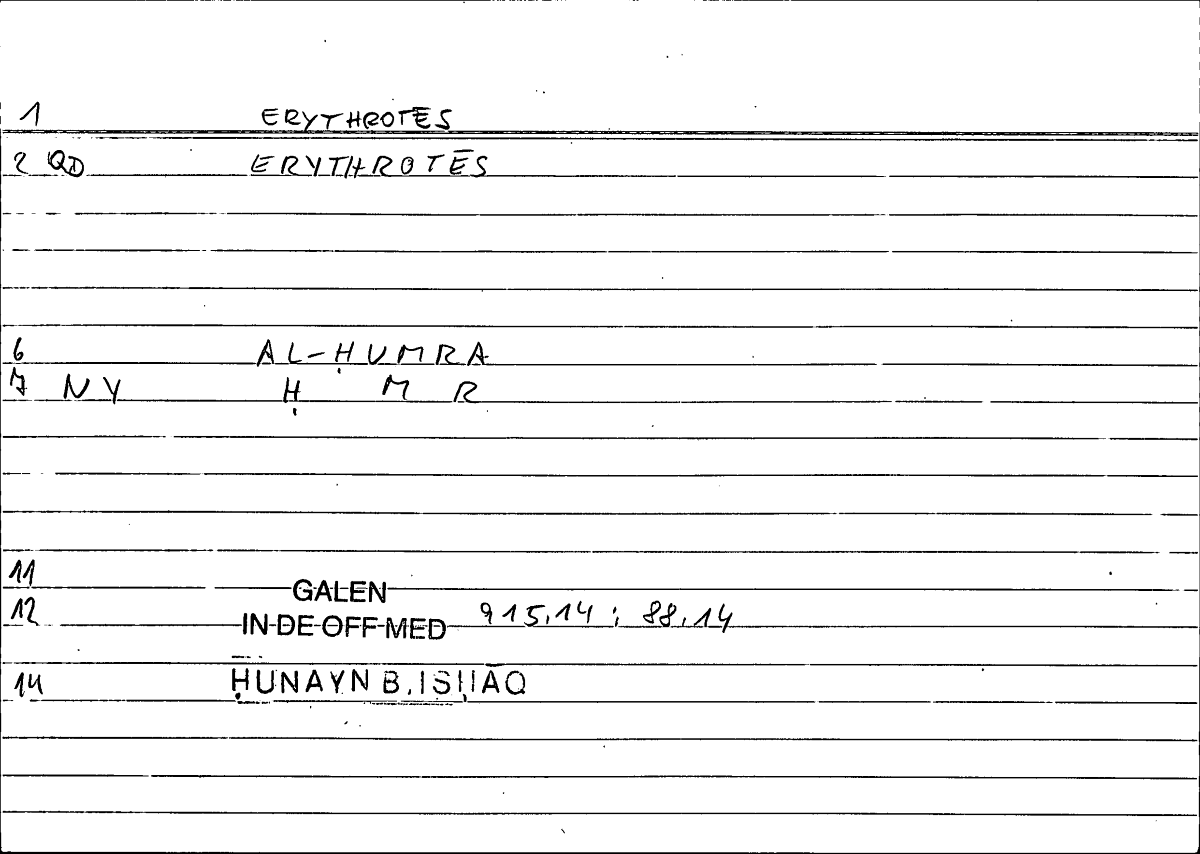 1 ERYTHROTĒS
2 QD ERYTHROTĒS
6 AL-ḤUMRA
7 NY Ḥ M R
11 GALEN
12 IN DE OFF MED 915,14 ; 88,14
14 ḤUNAYN B. ISḤĀQ